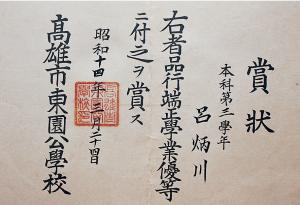 賞狀
本科第三學年
呂炳川
右者品行端正學業優等
ニ付之ヲ賞ス
昭和十四年三月二十四日
高雄市東園公學校